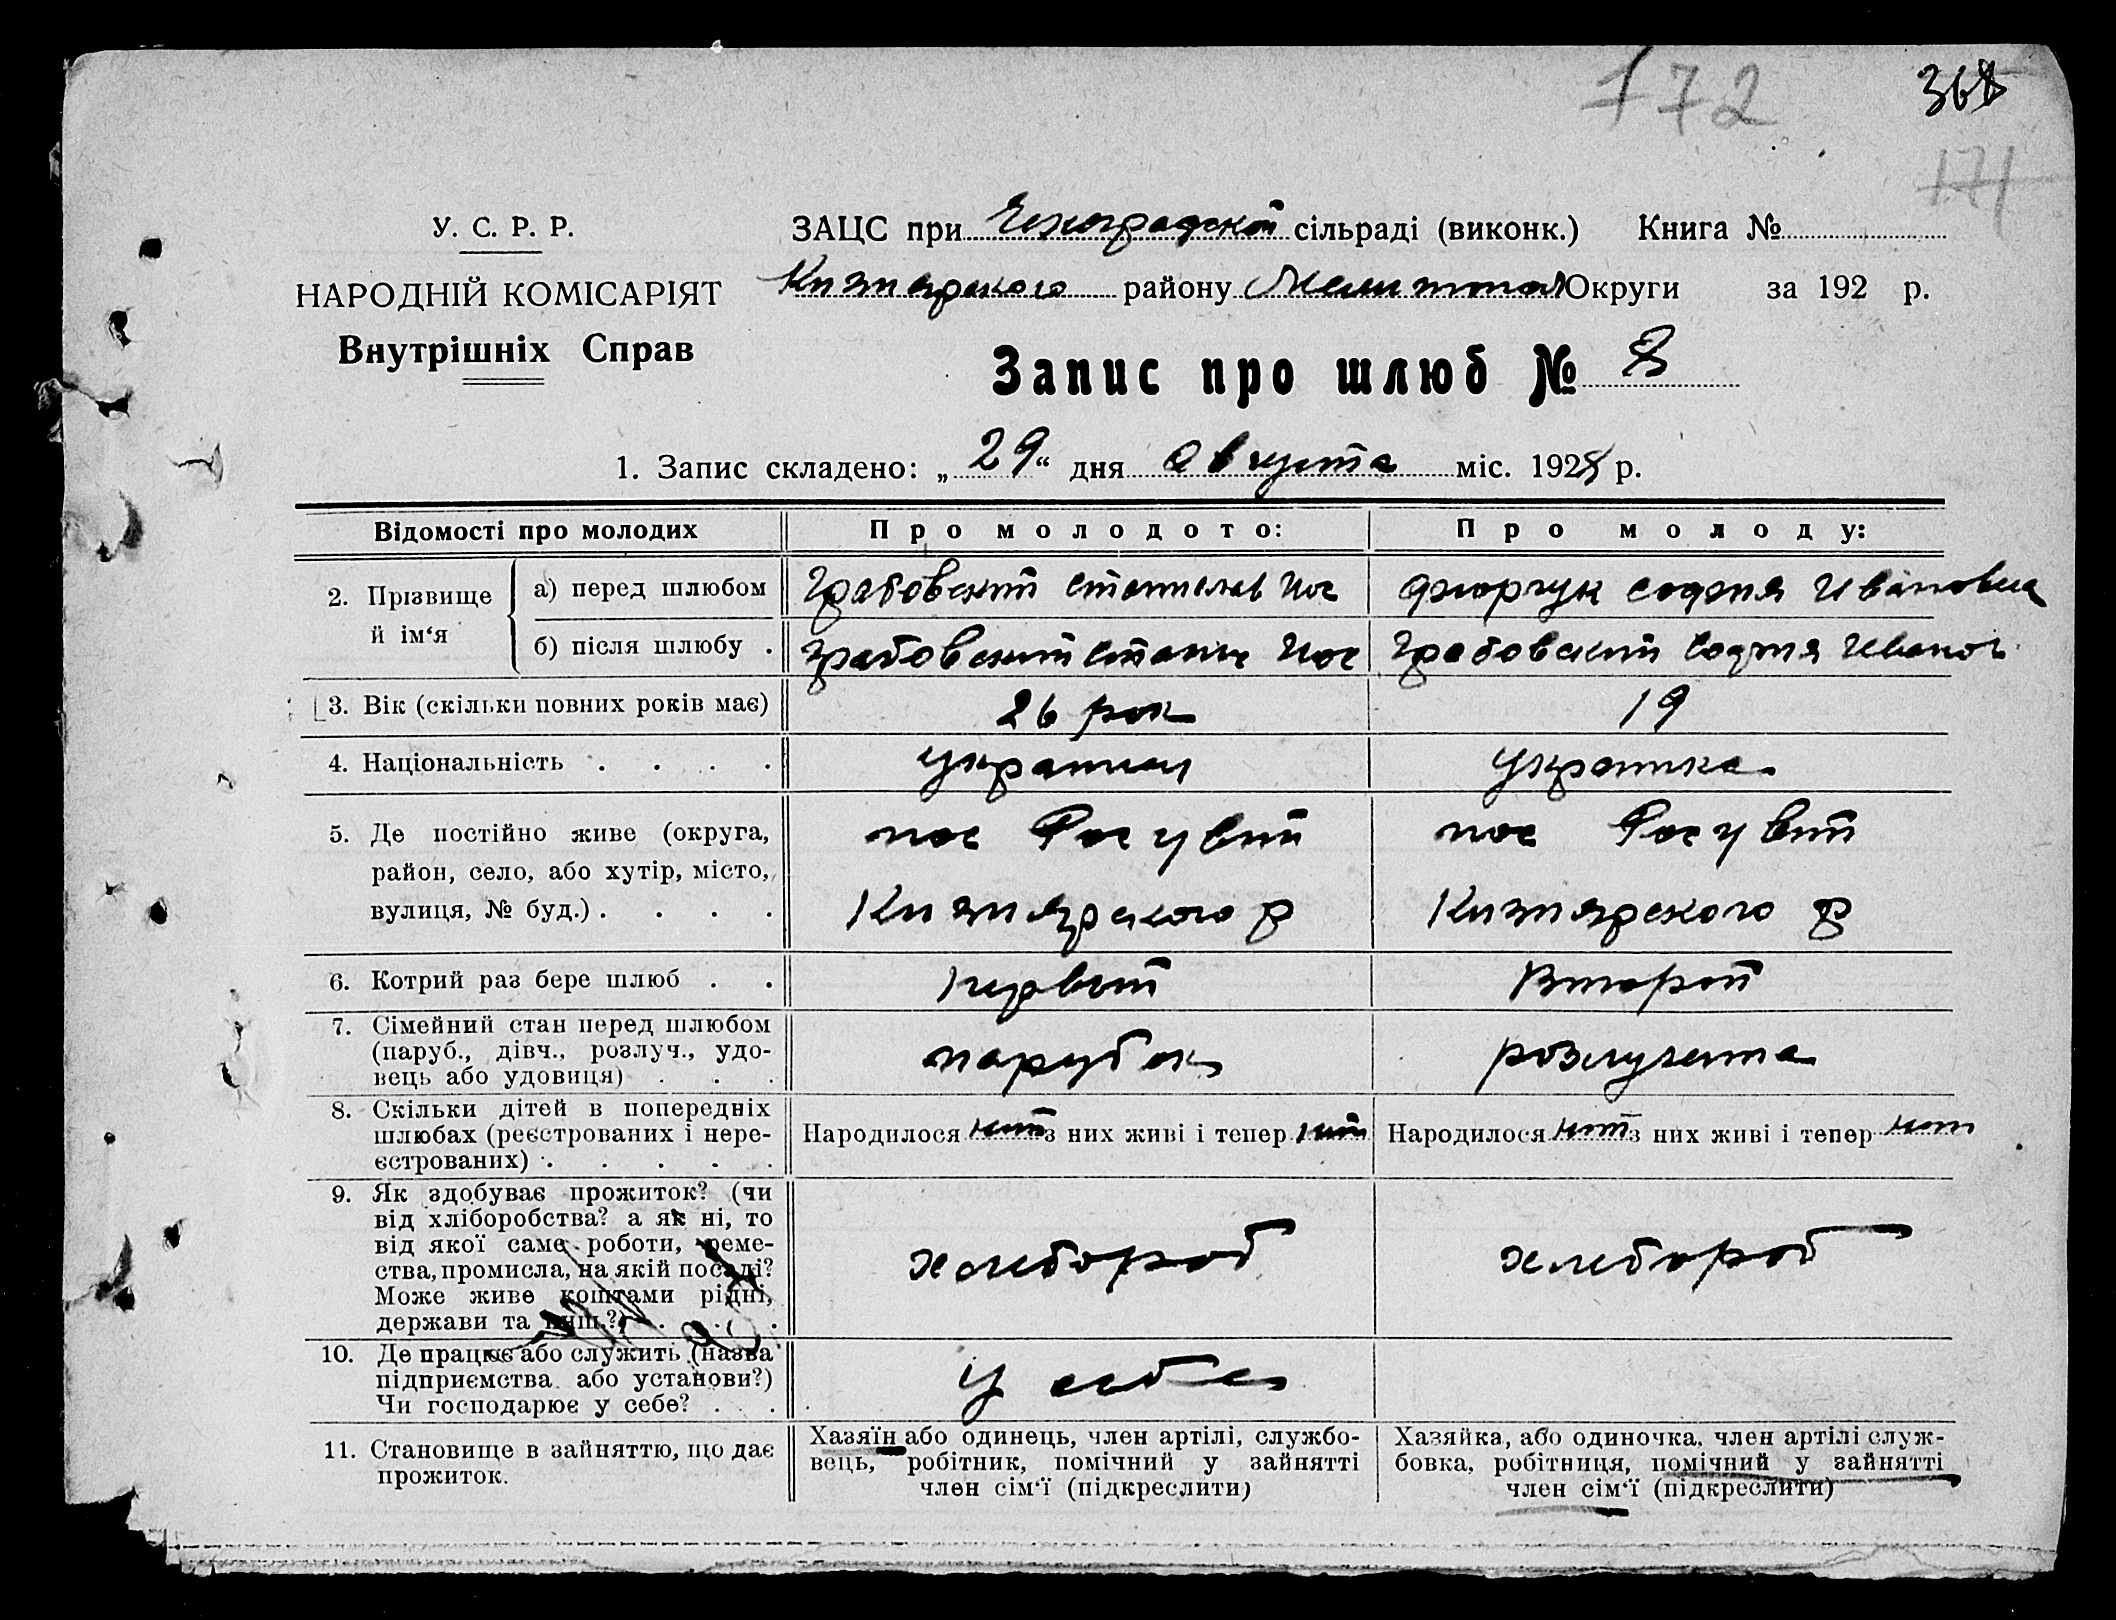 172
368
171
У. С. Р. Р.
НАРОДНІЙ КОМІСАРІЯТ
Внутрішніх Справ
ЗАЦС при Чехоградской сільраді (виконк.) Книга №
Кизиярского району Мелитопол Округи за 192 р.
Запис про шлюб № 8
1. Запис складено: „29“ дня Августа міс. 1928 р.
Відомості про молодих
Про молодого:
Про молоду:
2. Прізвище й ім‘я
а) перед шлюбом
Грабовский Станислав Иос
София Ивановна
б) після шлюбу .
Грабовский Станис Иос
Грабовский София Иванов
3. Вік (скільки повних років має)
26 рок
19
4. Національність . . . .
Украинец
Украинка
5. Де постійно живе (округа,
район, село, або хутір, місто,
вулиця, № буд.) . . . .
пос
Кизиярского р
пос
Кизиярского р
6. Котрий раз бере шлюб . .
первый
Второй
7. Сімейний стан перед шлюбом
(паруб., дівч., розлуч., удо-
вець або удовиця) . . .
парубок
розлучена
8. Скільки дітей в попередніх
шлюбах (реєстрованих і нере-
єстрованих) . . . . .
Народилося нит з них живі і тепер нит
Народилося нит з них живі і тепер нит
9. Як здобуває прожиток? (чи
від хліборобства? а як ні, то
від якої саме роботи, реме-
ства, промисла, на якій посаді?
Може живе коштами рідні,
держави та инш.?) . . . .
хлебороб
хлебороб
10. Де працює або служить (назва
підприємства або установи?)
Чи господарює у себе? . . .
У себе
11. Становище в зайняттю, що дає
прожиток.
Хазяїн або одинець, член артілі, службо-
вець, робітник, помічний у зайнятті
член сім‘ї (підкреслити)
Хазяйка, або одиночка, член артілі служ-
бовка, робітниця, помічний у зайнятті
член сім‘ї (підкреслити)